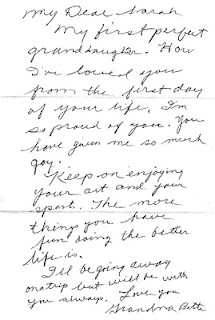 My Dear Sarah
My first perfect
granddaughter. How
I've loved you
from the first day
of your life. I'm
so proud of you. You
have given me so much
joy.
Keep on enjoying
your art and your
sport. The more
things you have
fun doing the better
life is.
I'll be going away
on a trip but will be with
you always. Love you
Grandma Bette